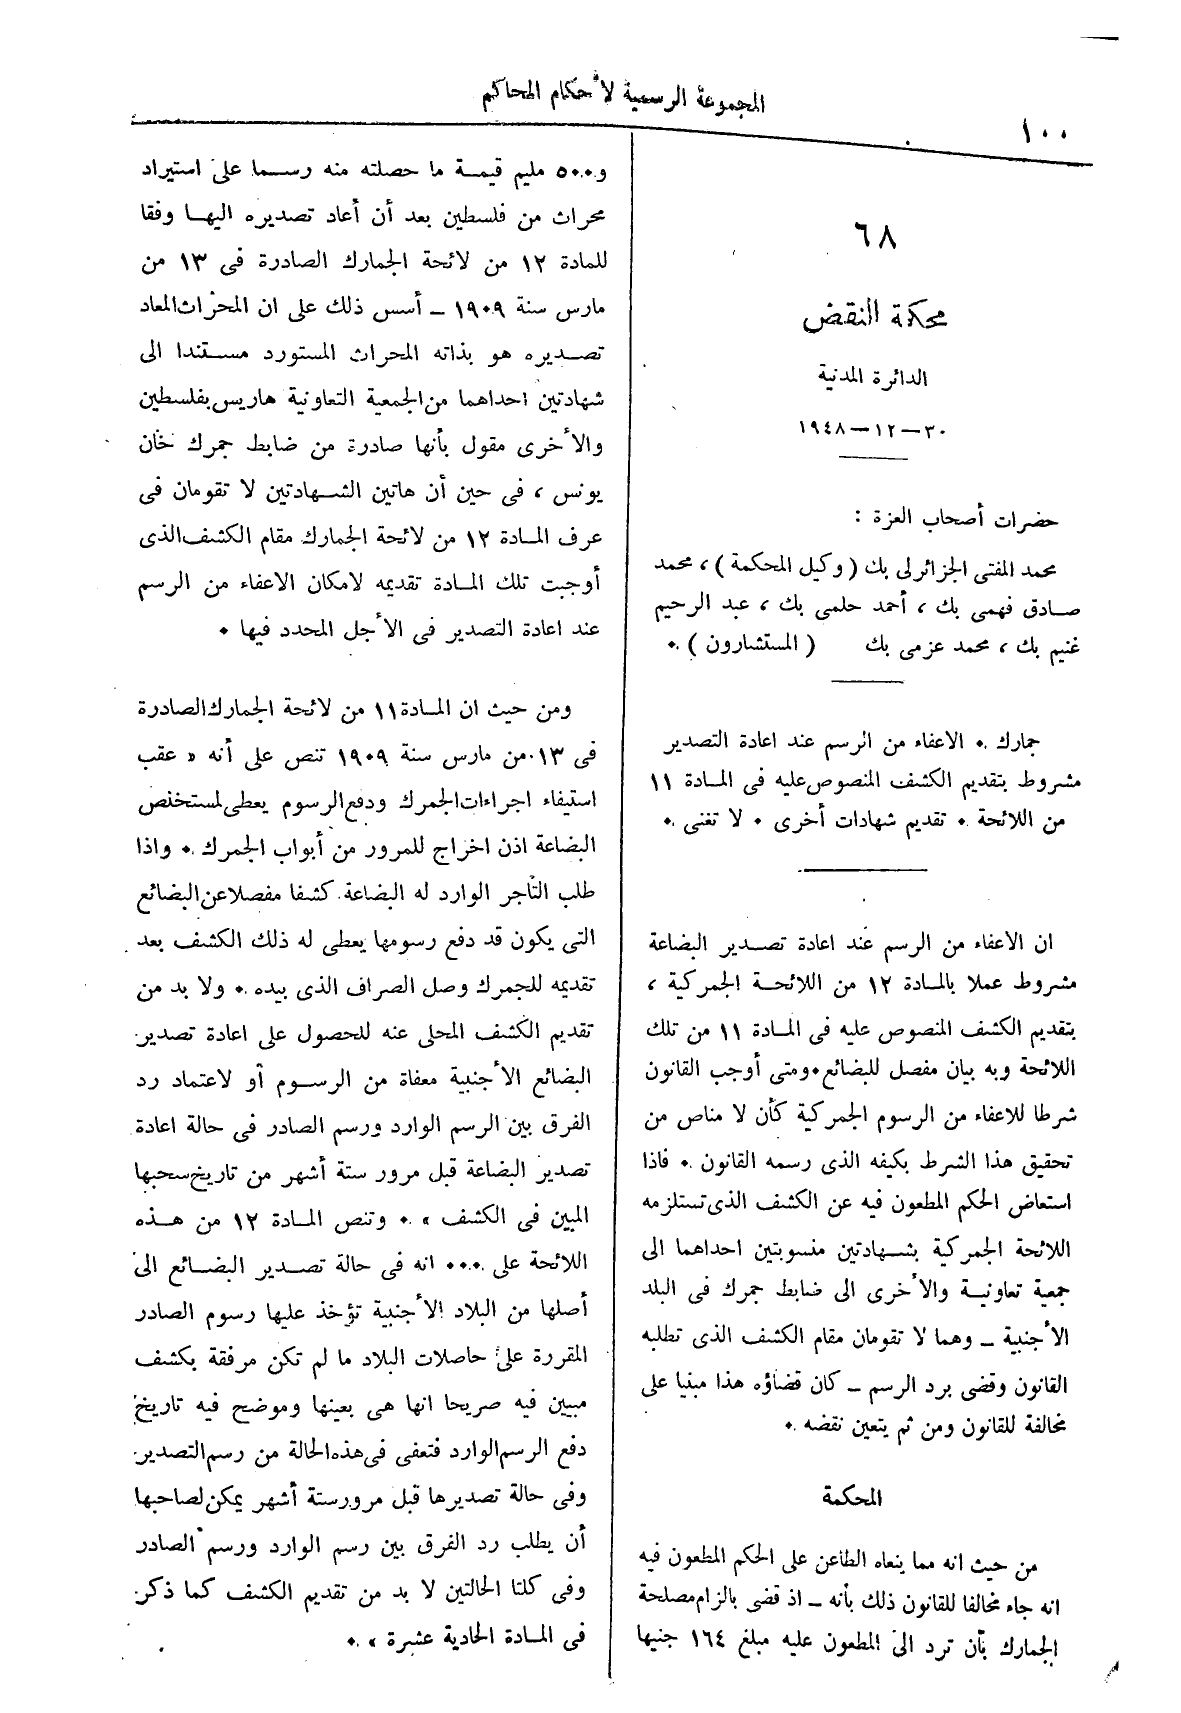 المجموعة الرسمية لأحكام المحاكم
١٠٠
٦٨
محكمة النقض
الدائرة المدنية
٣٠ — ١٢ — ١٩٤٨
حضرات أصحاب العزة :
محمد المفتى الجزائرلى بك ( وكيل المحكمة ) ، محمد
صادق فهمى بك ، أحمد حلمى بك ، عبد الرحيم
غنيم بك ، محمد عزمى بك ( المستشارون ) .
جمارك . الاعفاء من الرسم عند اعادة التصدير
مشروط بتقديم الكشف المنصوص عليه فى المادة ١١
من اللائحة . تقديم شهادات أخرى . لا تغنى .
ان الاعفاء من الرسم عند اعادة تصدير البضاعة
مشروط عملا بالمادة ١٢ من اللائحة الجمركية ،
بتقديم الكشف المنصوص عليه فى المادة ١١ من تلك
اللائحة وبه بيان مفصل للبضائع . ومتى أوجب القانون
شرطا للاعفاء من الرسوم الجمركية كان لا مناص من
تحقيق هذا الشرط بكيفه الذى رسمه القانون . فاذا
استعاض الحكم المطعون فيه عن الكشف الذى تستلزمه
اللائحة الجمركية بشهادتين منسوبتين احداهما الى
جمعية تعاونية والأخرى الى ضابط جمرك فى البلد
الأجنبية — وهما لا تقومان مقام الكشف الذى تطلبه
القانون وقضى برد الرسم — كان قضاؤه هذا مبنيا على
مخالفة للقانون ومن ثم يتعين نقضه .
المحكمة
من حيث انه مما ينعاه الطاعن على الحكم المطعون فيه
انه جاء مخالفا للقانون ذلك بأنه — اذ قضى بالزام مصلحة
الجمارك بأن ترد الى المطعون عليه مبلغ ١٦٤ جنيها
و٥٠٠ مليم قيمة ما حصلته منه رسما على استيراد
محراث من فلسطين بعد أن أعاد تصديره اليها وفقا
للمادة ١٢ من لائحة الجمارك الصادرة فى ١٣ من
مارس سنة ١٩٠٩ — أسس ذلك على ان المحراث المعاد
تصديره هو بذاته المحراث المستورد مستندا الى
شهادتين احداهما من الجمعية التعاونية هاريس بفلسطين
والأخرى مقول بأنها صادرة من ضابط جمرك خان
يونس ، فى حين أن هاتين الشهادتين لا تقومان فى
عرف المادة ١٢ من لائحة الجمارك مقام الكشف الذى
أوجبت تلك المادة تقديمه لامكان الاعفاء من الرسم
عند اعادة التصدير فى الأجل المحدد فيها .
ومن حيث ان المادة ١١ من لائحة الجمارك الصادرة
فى ١٣ من مارس سنة ١٩٠٩ تنص على أنه « عقب
استيفاء اجراءات الجمرك ودفع الرسوم يعطى لمستخلص
البضاعة اذن اخراج للمرور من أبواب الجمرك . واذا
طلب التاجر الوارد له البضاعة كشفا مفصلا عن البضائع
التى يكون قد دفع رسومها يعطى له ذلك الكشف بعد
تقديمه للجمرك وصل الصراف الذى بيده . ولا بد من
تقديم الكشف المحلى عنه للحصول على اعادة تصدير
البضائع الأجنبية معفاة من الرسوم أو لاعتماد رد
الفرق بين الرسم الوارد ورسم الصادر فى حالة اعادة
تصدير البضاعة قبل مرور ستة أشهر من تاريخ سحبها
المبين فى الكشف » . وتنص المادة ١٢ من هذه
اللائحة على ... انه فى حالة تصدير البضائع الى
أصلها من البلاد الأجنبية تؤخذ عليها رسوم الصادر
المقررة على حاصلات البلاد ما لم تكن مرفقة بكشف
مبين فيه صريحا انها هى بعينها وموضح فيه تاريخ
دفع الرسم الوارد فتعفى فى هذه الحالة من رسم التصدير
وفى حالة تصديرها قبل مرور ستة أشهر يمكن لصاحبها
أن يطلب رد الفرق بين رسم الوارد ورسم الصادر
وفى كلتا الحالتين لا بد من تقديم الكشف كما ذكر
فى المادة الحادية عشرة » .